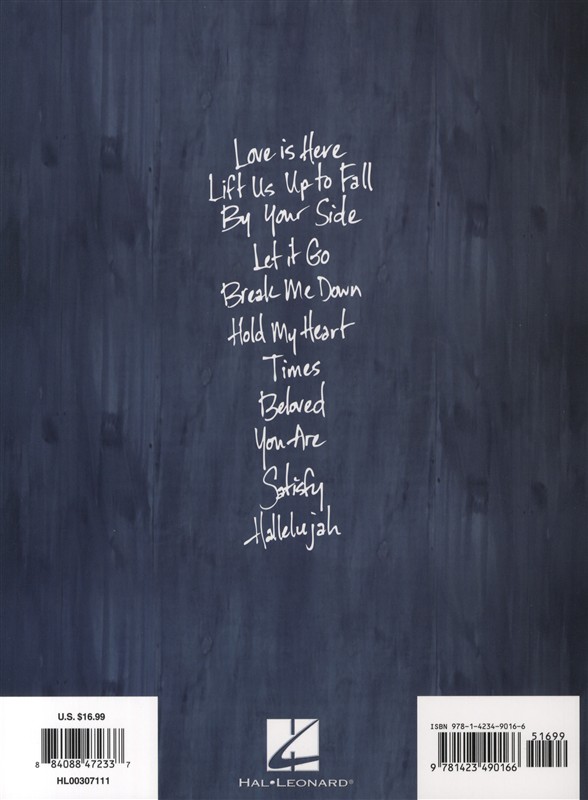 Love is Here
Lift Us Up to Fall
By Your Side
Let it Go
Break Me Down
Hold My Heart
Times
Beloved
You Are
Satisfy
Hallelujah
U.S. $16.99
8 84088 47233 7
HL00307111
HAL•LEONARD®
ISBN 978-1-4234-9016-6
51699
9 781423 490166